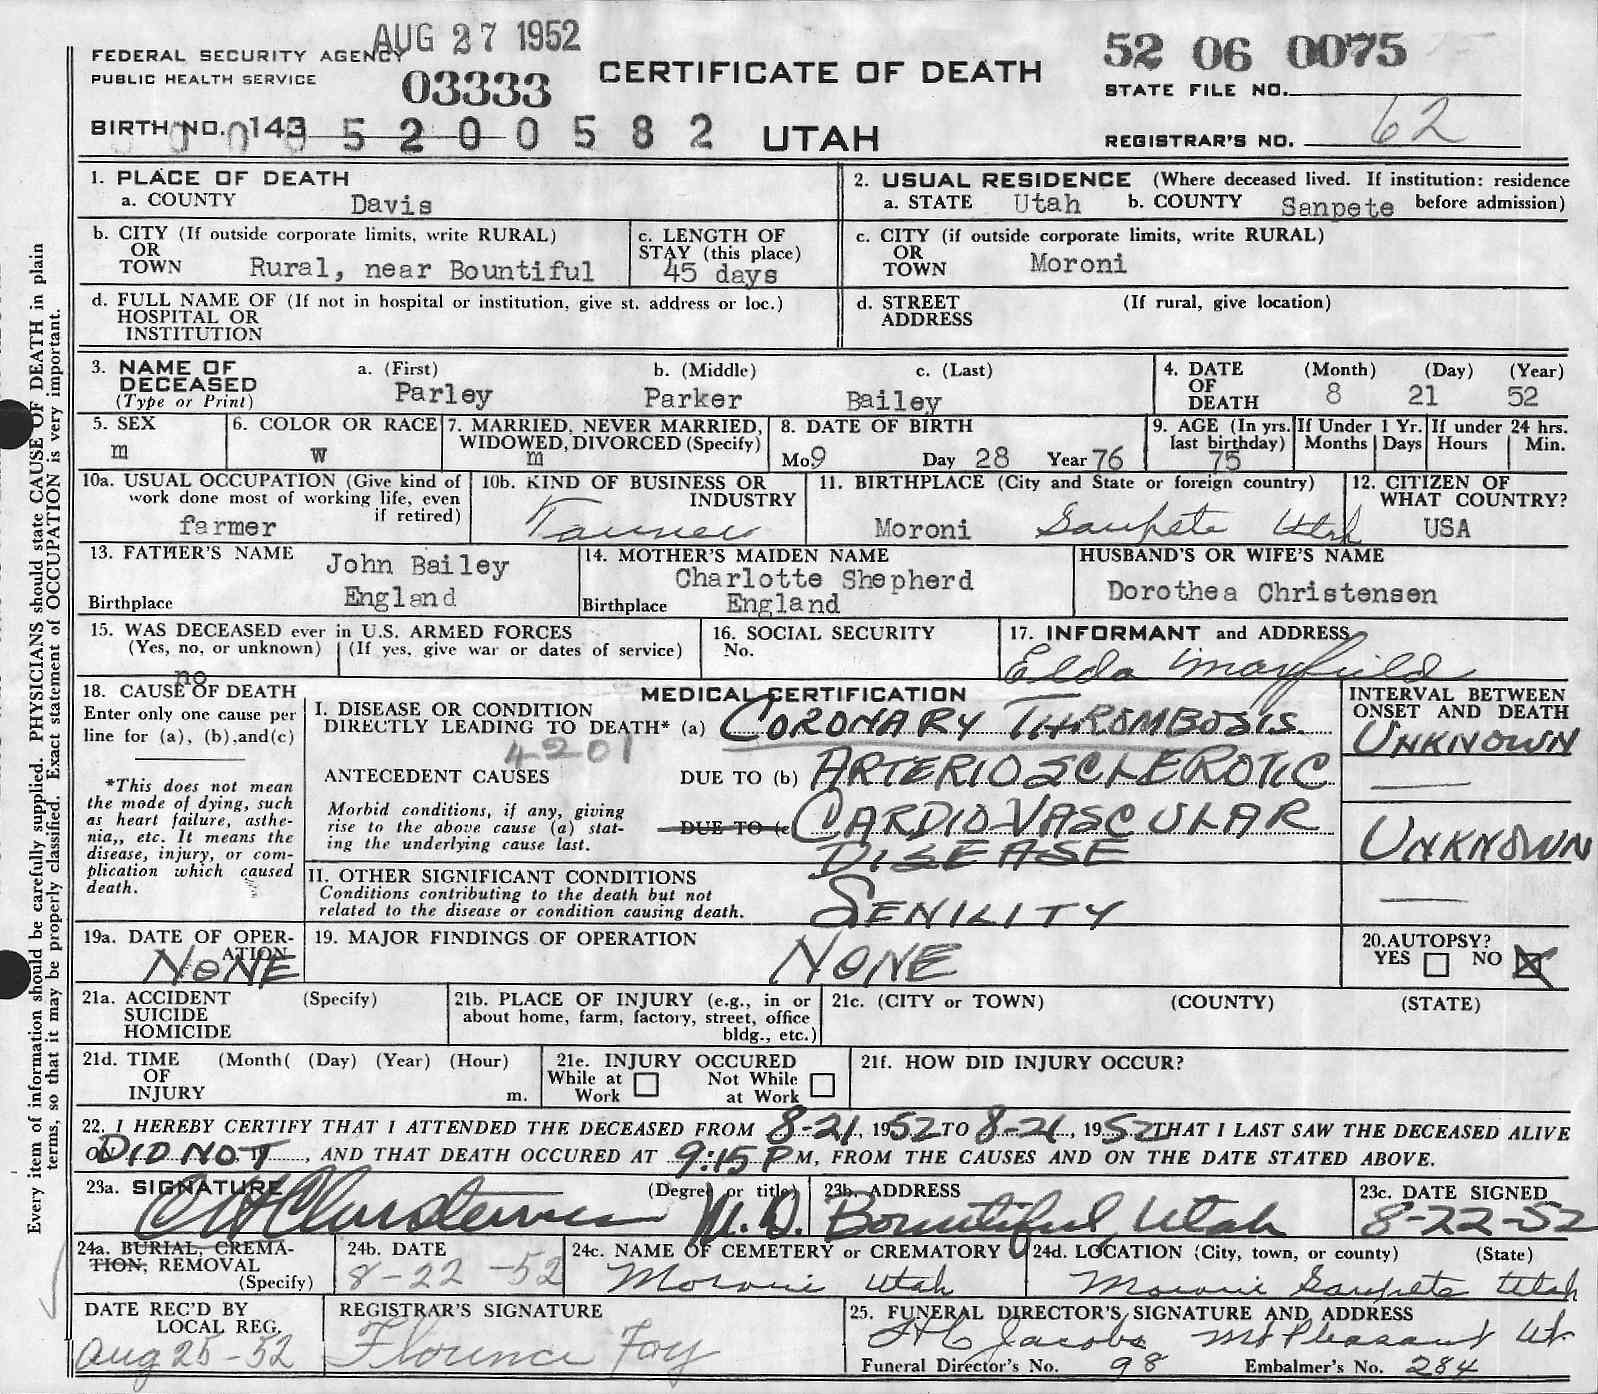 AUG 27 1952
FEDERAL SECURITY AGENCY
PUBLIC HEALTH SERVICE
03333
CERTIFICATE OF DEATH
52 06 0075
STATE FILE NO.
BIRTH NO. 143 5200582 UTAH
REGISTRAR'S NO. 62
1. PLACE OF DEATH
a. COUNTY Davis
2. USUAL RESIDENCE (Where deceased lived. If institution: residence before admission)
a. STATE Utah b. COUNTY Sanpete
b. CITY (If outside corporate limits, write RURAL)
OR
TOWN Rural, near Bountiful
c. LENGTH OF
STAY (this place)
45 days
c. CITY (if outside corporate limits, write RURAL)
OR
TOWN Moroni
d. FULL NAME OF (If not in hospital or institution, give st. address or loc.)
HOSPITAL OR
INSTITUTION
d. STREET (If rural, give location)
ADDRESS
3. NAME OF
DECEASED
(Type or Print)
a. (First) b. (Middle) c. (Last)
Parley Parker Bailey
4. DATE
OF
DEATH
(Month) (Day) (Year)
8 21 52
5. SEX
m
6. COLOR OR RACE
W
7. MARRIED, NEVER MARRIED,
WIDOWED, DIVORCED (Specify)
m
8. DATE OF BIRTH
Mo. 9 Day 28 Year 76
9. AGE (In yrs.
last birthday)
75
If Under 1 Yr.
Months Days
If under 24 hrs.
Hours Min.
10a. USUAL OCCUPATION (Give kind of
work done most of working life, even
if retired)
farmer
10b. KIND OF BUSINESS OR
INDUSTRY
11. BIRTHPLACE (City and State or foreign country)
Moroni Sanpete Utah
12. CITIZEN OF
WHAT COUNTRY?
USA
13. FATHER'S NAME John Bailey
Birthplace England
14. MOTHER'S MAIDEN NAME
Charlotte Shepherd
Birthplace England
HUSBAND'S OR WIFE'S NAME
Dorothea Christensen
15. WAS DECEASED ever in U.S. ARMED FORCES
(Yes, no, or unknown) (If yes, give war or dates of service)
no
16. SOCIAL SECURITY
No.
17. INFORMANT and ADDRESS
Elda Mayfield
18. CAUSE OF DEATH
Enter only one cause per
line for (a), (b), and (c)
*This does not mean
the mode of dying, such
as heart failure, asthe-
nia,, etc. It means the
disease, injury, or com-
plication which caused
death.
MEDICAL CERTIFICATION
I. DISEASE OR CONDITION
DIRECTLY LEADING TO DEATH* (a) CORONARY THROMBOSIS
4201
ANTECEDENT CAUSES DUE TO (b) ARTERIOSCLEROTIC
Morbid conditions, if any, giving
rise to the above cause (a) stat-
ing the underlying cause last.
DUE TO (c CARDIOVASCULAR
DISEASE
II. OTHER SIGNIFICANT CONDITIONS
Conditions contributing to the death but not
related to the disease or condition causing death.
SENILITY
INTERVAL BETWEEN
ONSET AND DEATH
UNKNOWN
UNKNOWN
19a. DATE OF OPER-
ATION
NONE
19. MAJOR FINDINGS OF OPERATION
NONE
20. AUTOPSY?
YES NO
21a. ACCIDENT (Specify)
SUICIDE
HOMICIDE
21b. PLACE OF INJURY (e.g., in or
about home, farm, factory, street, office
bldg., etc.)
21c. (CITY or TOWN) (COUNTY) (STATE)
21d. TIME (Month( (Day) (Year) (Hour)
OF
INJURY m.
21e. INJURY OCCURED
While at Not While
Work at Work
21f. HOW DID INJURY OCCUR?
22. I HEREBY CERTIFY THAT I ATTENDED THE DECEASED FROM 8-21, 1952 TO 8-21, 1952 THAT I LAST SAW THE DECEASED ALIVE
ON DID NOT, AND THAT DEATH OCCURED AT 9:15 P M, FROM THE CAUSES AND ON THE DATE STATED ABOVE.
23a. SIGNATURE (Degree or title)
M.D.
23b. ADDRESS
Bountiful, Utah
23c. DATE SIGNED
8-22-52
24a. BURIAL, CREMA-
TION, REMOVAL
(Specify)
24b. DATE
8-22-52
24c. NAME OF CEMETERY or CREMATORY
Moroni Utah
24d. LOCATION (City, town, or county) (State)
Moroni Sanpete Utah
DATE REC'D BY
LOCAL REG.
Aug 25-52
REGISTRAR'S SIGNATURE
Florence Foy
25. FUNERAL DIRECTOR'S SIGNATURE AND ADDRESS
Jacobs Mt Pleasant Ut.
Funeral Director's No. 98 Embalmer's No. 284
Every item of information should be carefully supplied. PHYSICIANS should state CAUSE OF DEATH in plain
terms, so that it may be properly classified. Exact statement of OCCUPATION is very important.